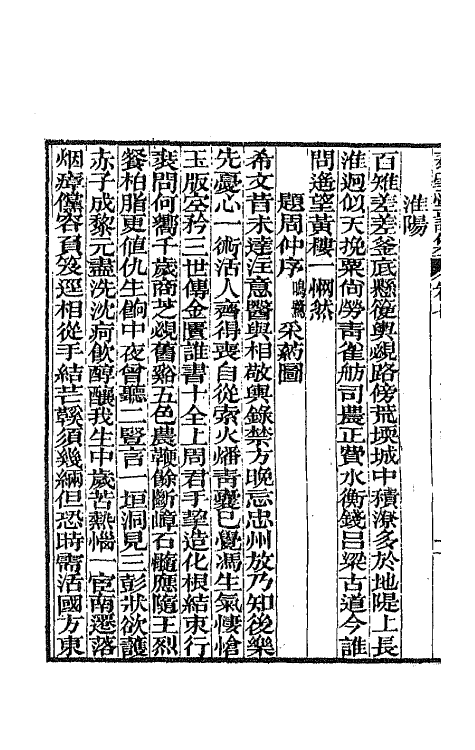 淮陽
百雉差差釜底懸後輿覢路傍荒堧城中積潦多於地隄上長
淮迥似天挽粟尚勞青雀舫司農正費水衡錢呂梁古道今誰
問遙望黃樓一惘然
題周仲序鳴鸞采葯圖
希文昔未達注意醫與相敬輿錄禁方晚忘忠州放乃知後樂
先憂心一術活人齊得喪自從索火燔青囊已覺馮生氣悽愴
玉版空矜三世傳金匱誰書十全上周君手挈造化根結束行
裝問何嚮千歲商芝覢舊谿五色農鞭餘斷嶂石髓應隨王烈
餐柏脂更値仇生餉中夜曾聽二豎言一垣洞見三彭狀欲護
赤子成黎元盡洗沈疴飮醇釀我生中歲苦熱惱一宦南遷落
烟瘴儻容負笈逕相從手結芒鞵須幾緉但恐時需活國方東